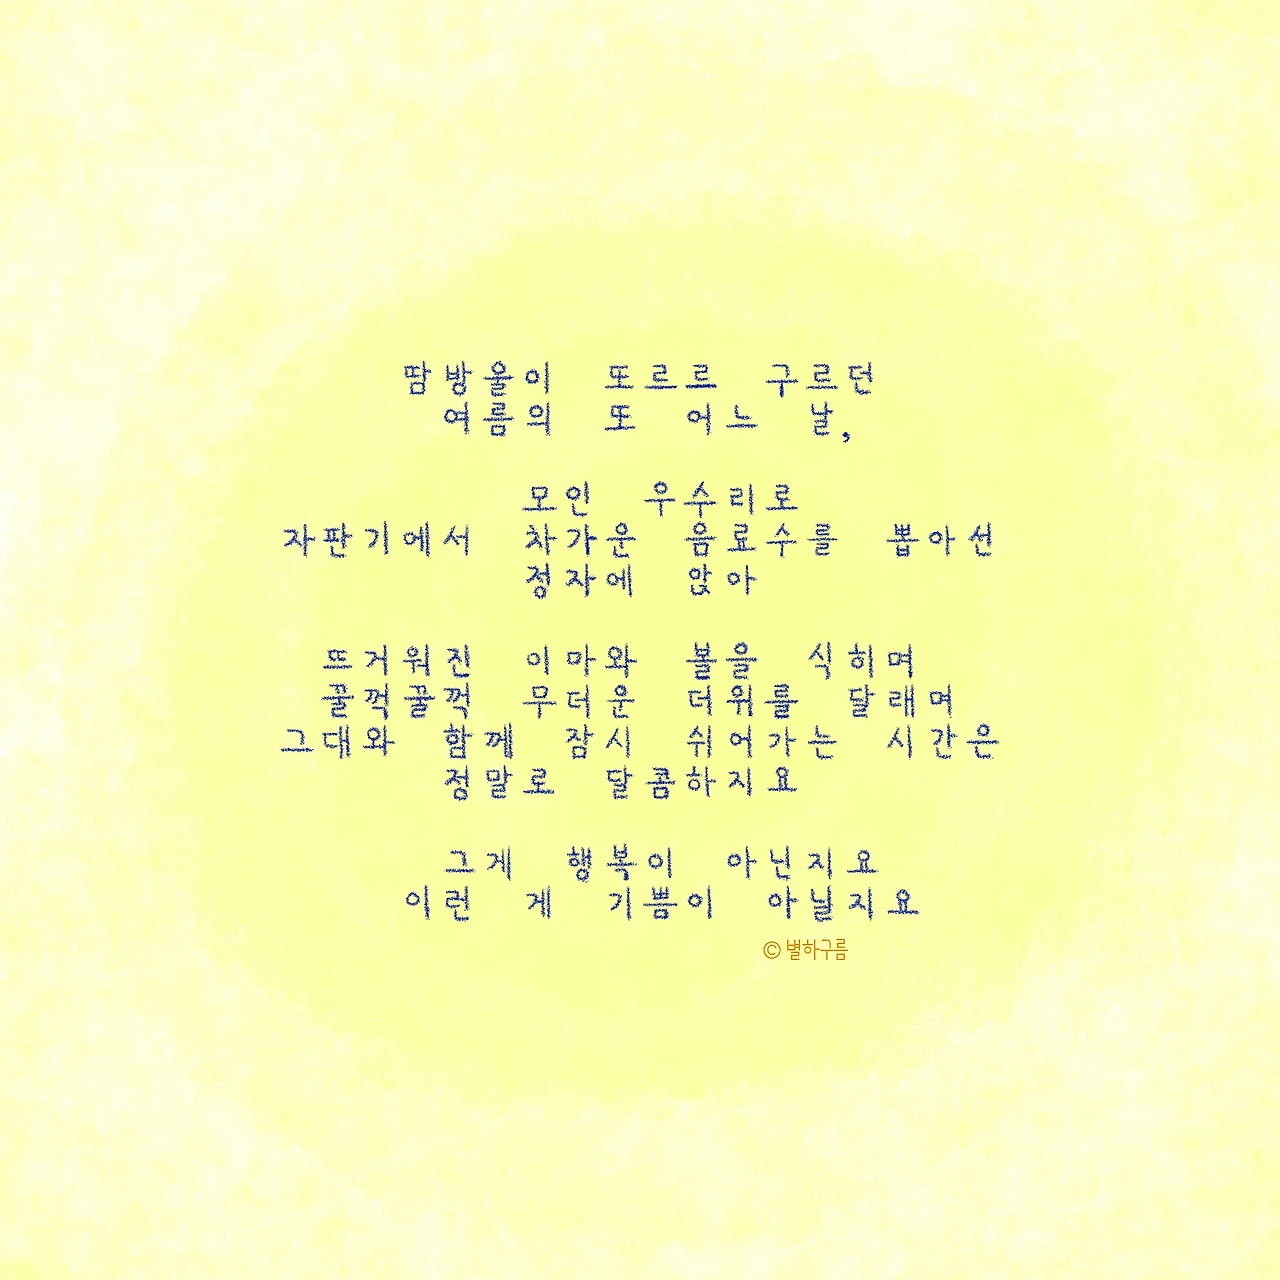 땀방울이 또르르 구르던
여름의 또 어느 날,
모인 우수리로
자판기에서 차가운 음료수를 뽑아선
정자에 앉아
뜨거워진 이마와 볼을 식히며
꿀꺽꿀꺽 무더운 더위를 달래며
그대와 함께 잠시 쉬어가는 시간은
정말로 달콤하지요
그게 행복이 아닌지요
이런 게 기쁨이 아닐지요
© 별하구름